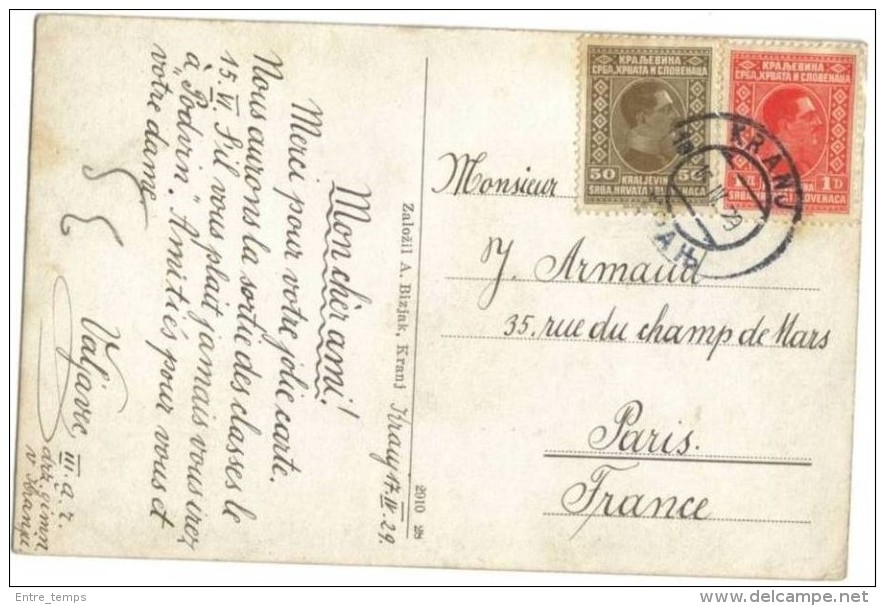 Mon cher ami!
Merci pour votre jolie carte.
Nous aurons la sortie des classes le
15. VI. S'il vous plait jamais vous irez
à "Podvin". Amitiés pour vous et
votre dame
Valjavec III. a. r.
drž. gimn
v Kranju
Založil A. Bizjak, Kranj
Kranj 17. IV. 29.
2910
КРАЉЕВИНА
СРБА, ХРВАТА И СЛОВЕНАЦА
50 KRALJEVIN 50
SRBA, HRVATA I NACA
КРАЉЕВИНА
СРБА, ХРВАТА И СЛОВЕНАЦА
1D
SRBA SLOVENACA
KRANJ
Monsieur
J. Armand
35. rue du champ de Mars
Paris.
France
Entre_temps
http://www.delcampe.net